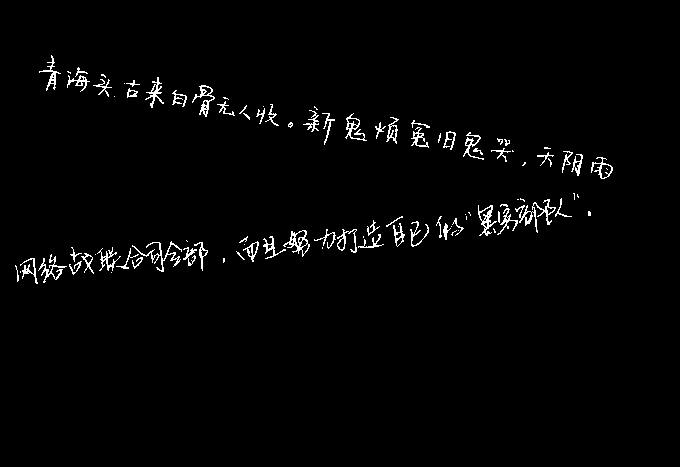 青海头古来白骨无人收。新鬼烦冤旧鬼哭，天阴雨
网络战联合司令部，而且努力打造自己的“黑客部队”．